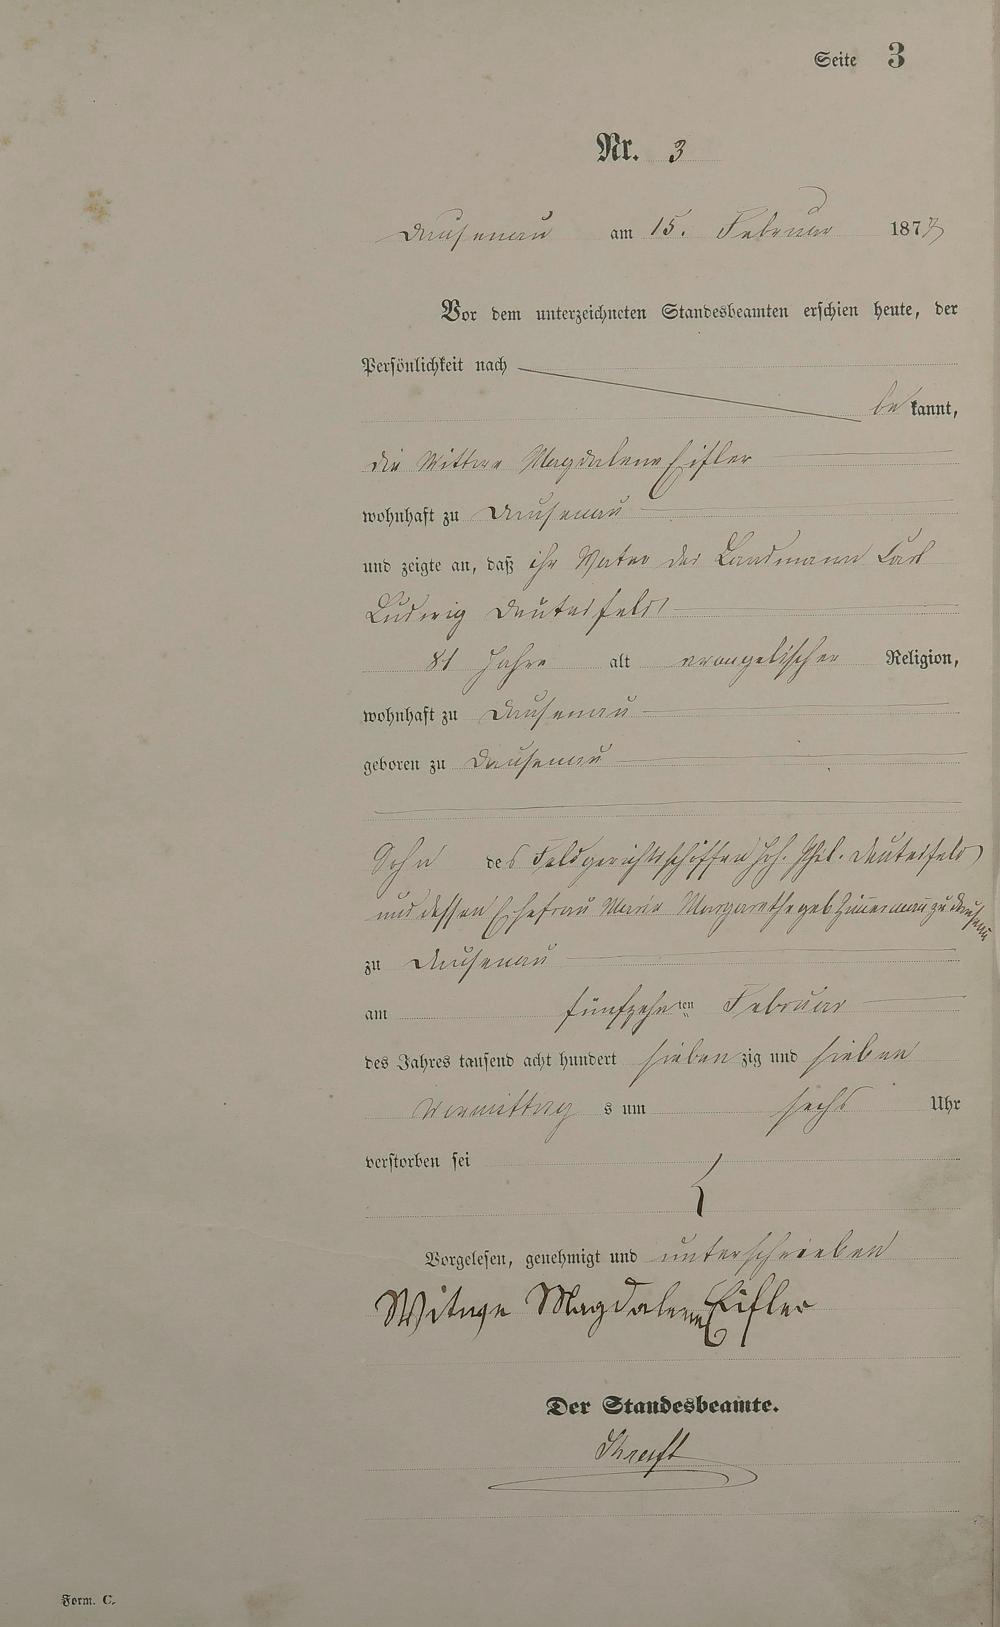 Seite 3
Nr. 3
Dausenau am 15. Februar 1877
Vor dem unterzeichneten Standesbeamten erschien heute, der
Persönlichkeit nach
be kannt,
die Wittwe Magdalene Eifler
wohnhaft zu Dausenau
und zeigte an, daß ihr Vater der Landmann Carl
Ludwig Dauterfeld
81 Jahre alt evangelischer Religion,
wohnhaft zu Dausenau
geboren zu Dausenau
Sohn des Feldgerichtsschöffen Joh. Phil. Dauterfeld
und dessen Ehefrau Maria Margarethe geb Zimmermann zu Dausenau
zu Dausenau
am fünfzehn ten Februar
des Jahres tausend acht hundert sieben zig und sieben
Vormittag s um sechs Uhr
verstorben sei
Vorgelesen, genehmigt und unterschrieben
Witwe Magdalene Eifler
Der Standesbeamte.
Form. C.